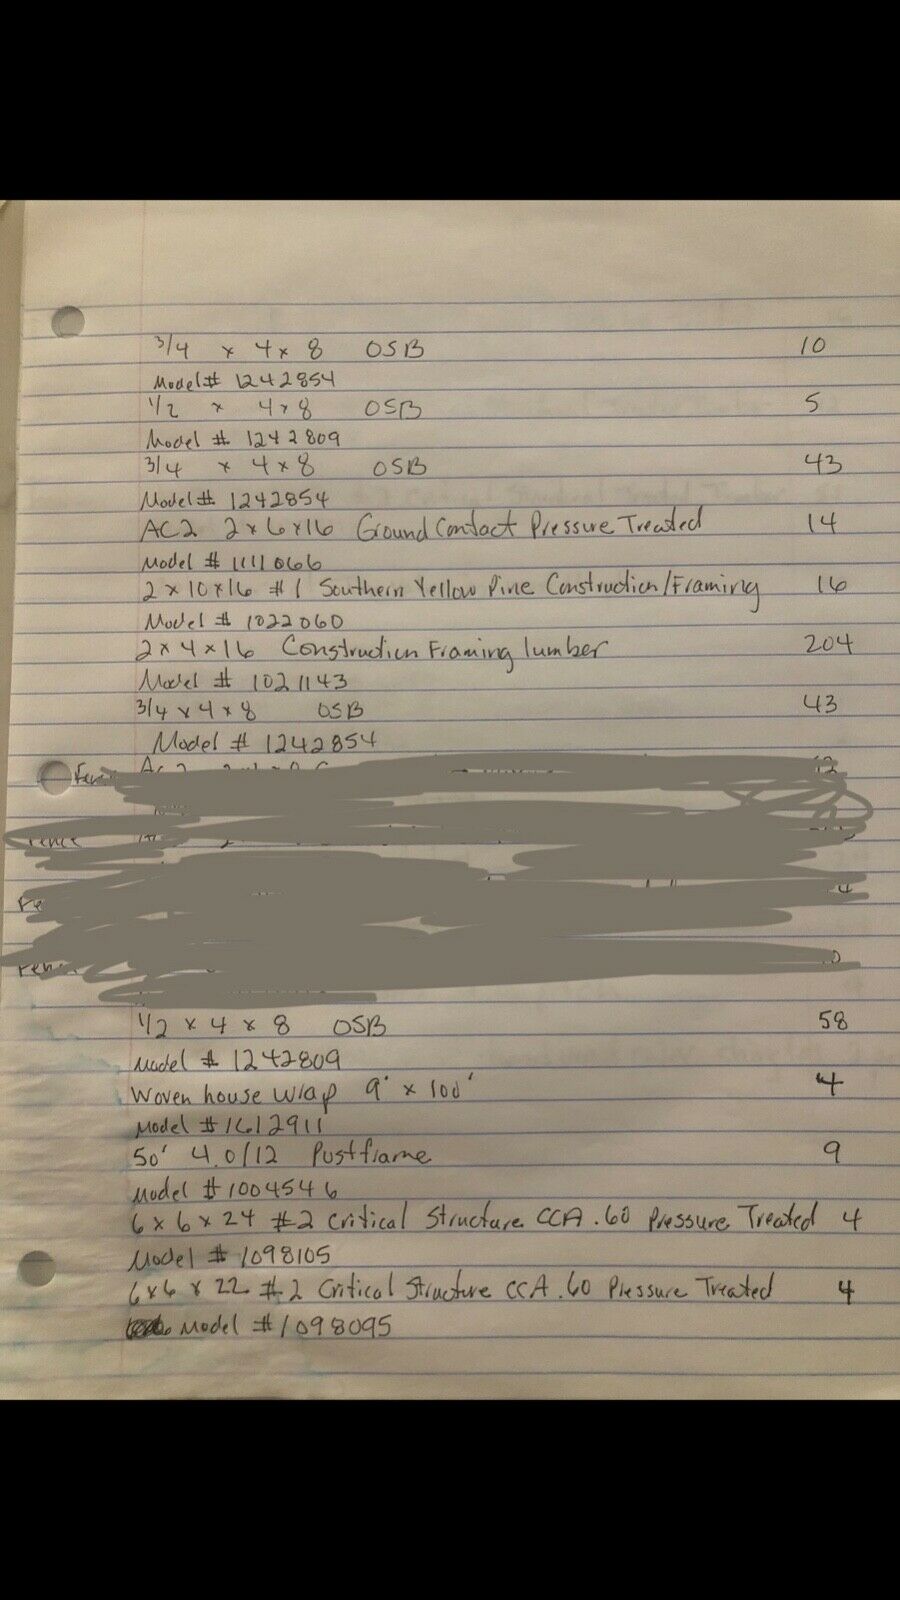 3/4 x 4 x 8 OSB 10
Model # 1242854
1/2 x 4 x 8 OSB 5
Model # 1242809
3/4 x 4 x 8 OSB 43
Model # 1242854
AC2 2 x 6 x 16 Ground Contact Pressure Treated 14
Model # 1111066
2 x 10 x 16 #1 Southern Yellow Pine Construction/Framing 16
Model # 1022060
2 x 4 x 16 Construction Framing lumber 204
Model # 1021143
3/4 x 4 x 8 OSB 43
Model # 1242854
1/2 x 4 x 8 OSB 58
Model # 1242809
Woven house wrap 9' x 100' 4
Model # 1612911
50' 4.0/12 Postframe 9
Model # 1004546
6 x 6 x 24 #2 Critical Structure CCA .60 Pressure Treated 4
Model # 1098105
6 x 6 x 22 #2 Critical Structure CCA .60 Pressure Treated 4
Model # 1098095